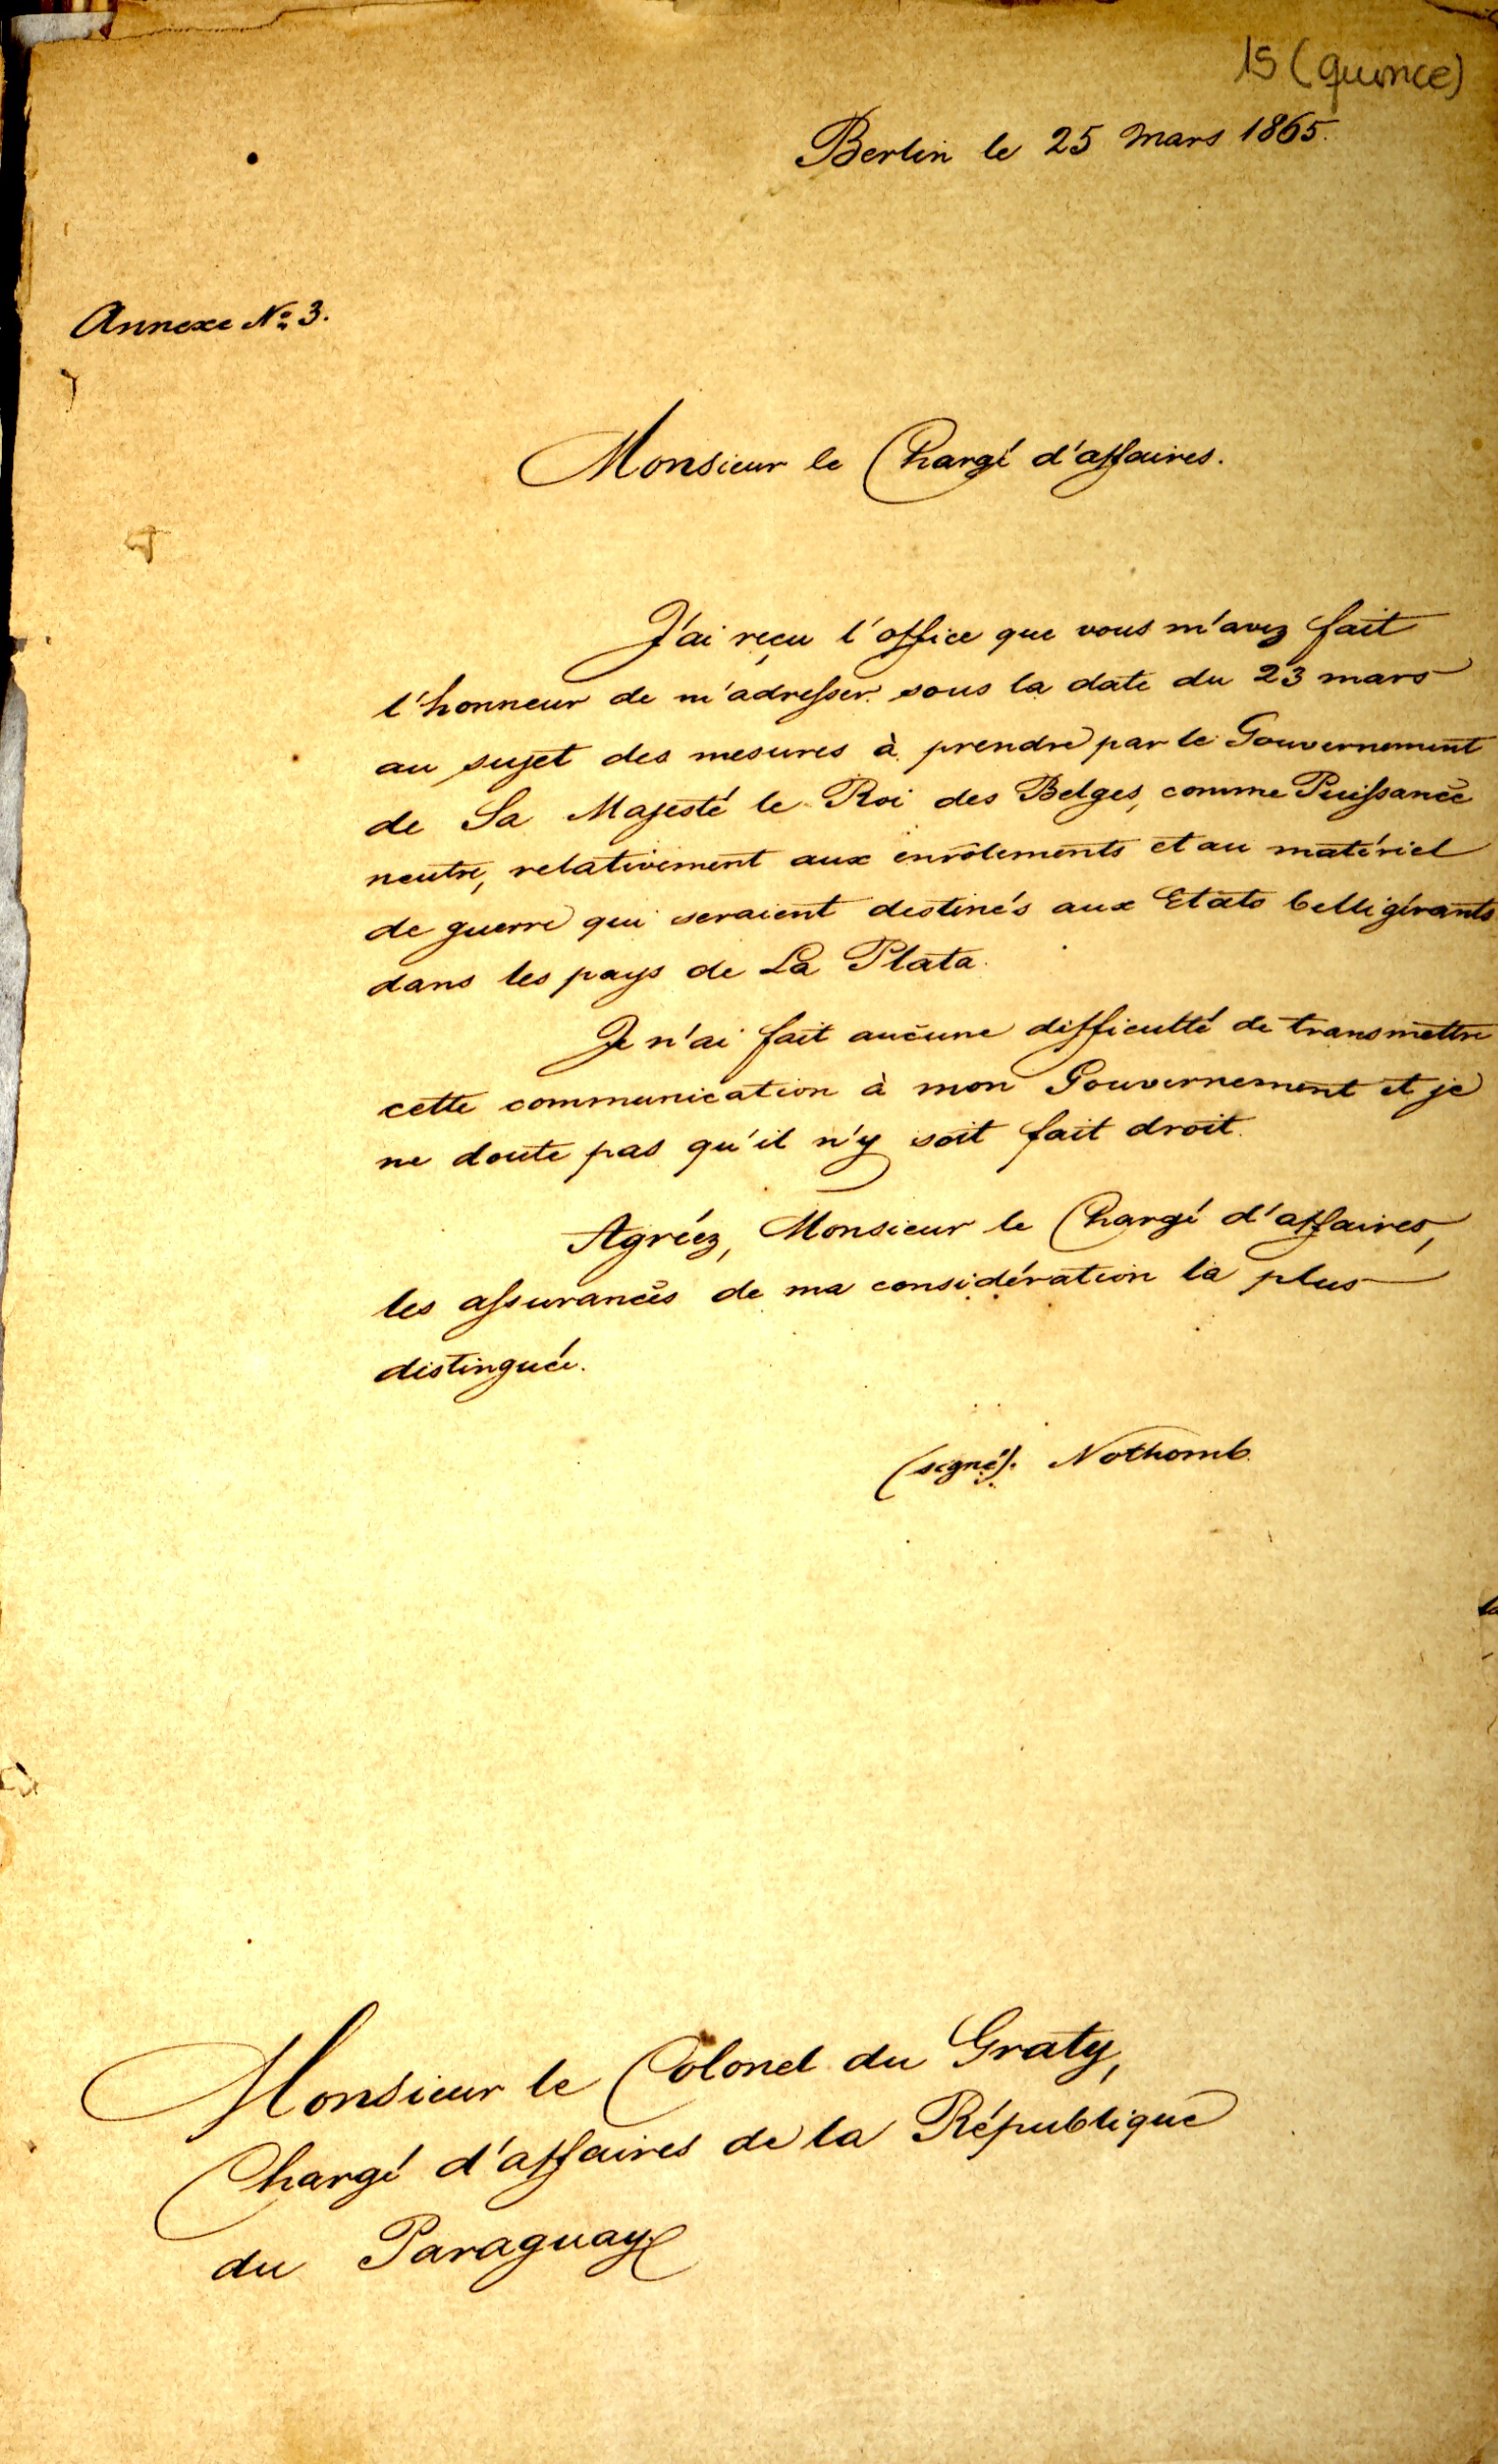 15 (quince)
Berlin le 25 Mars 1865.
Annexe No 3.
Monsieur le Chargé d'affaires.
J'ai reçu l'office que vous m'avez fait
l'honneur de m'adresser sous la date du 23 mars
au sujet des mesures à prendre par le Gouvernement
de Sa Majesté le Roi des Belges, comme Puissance
neutre, relativement aux enrôlements et au matériel
de guerre qui seraient destinés aux Etats belligérants
dans les pays de La Plata.
Je n'ai fait aucune difficulté de transmettre
cette communication à mon Gouvernement et je
ne doute pas qu'il n'y soit fait droit.
Agréez, Monsieur le Chargé d'affaires,
les assurances de ma considération la plus
distinguée.
(signé). Nothomb.
Monsieur le Colonel du Graty,
Chargé d'affaires de la République
du Paraguay